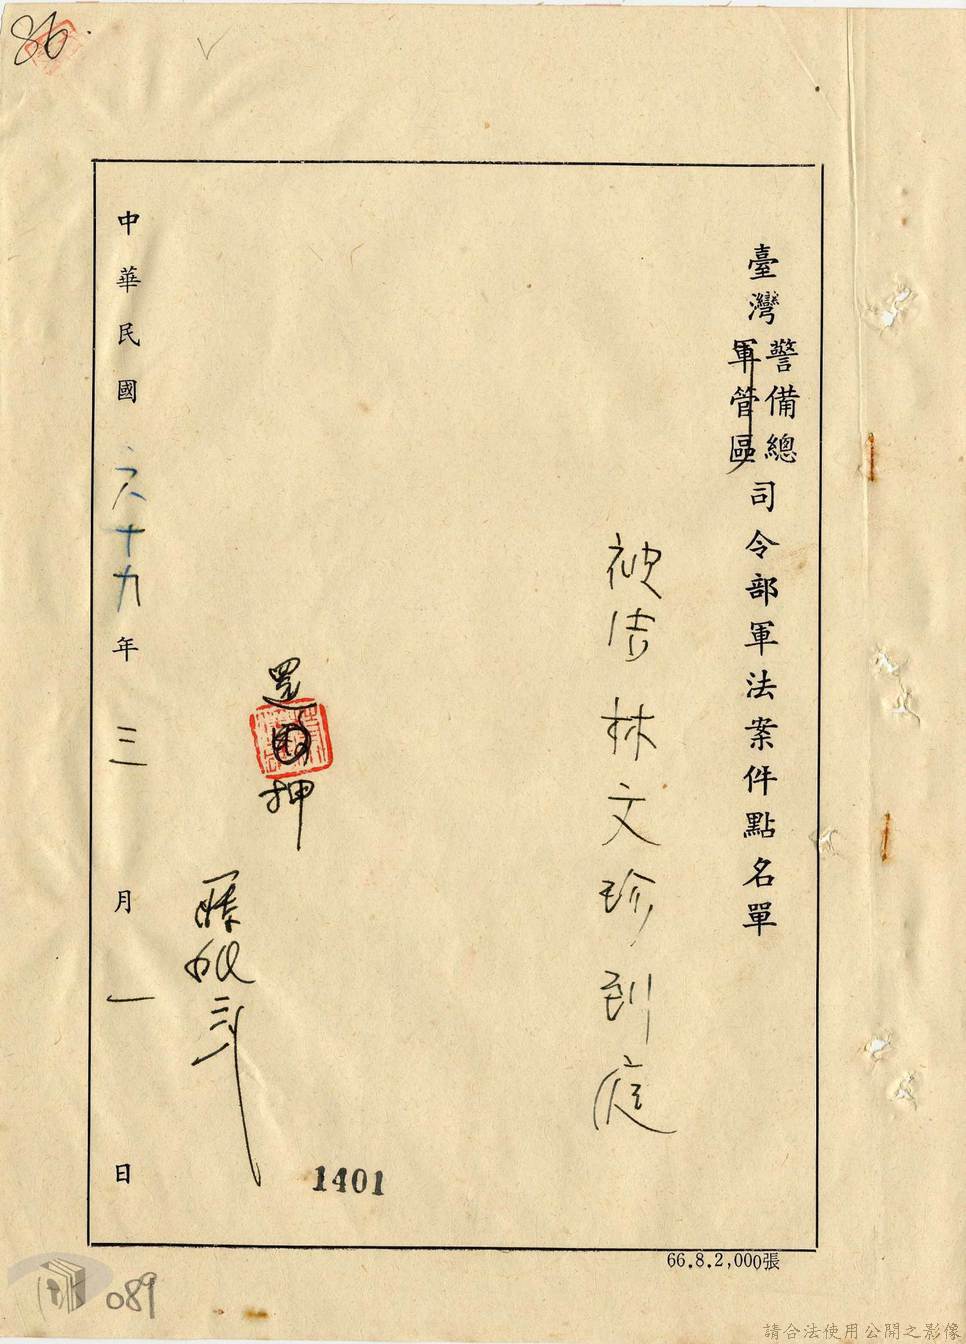 86
臺灣警備總軍管區司令部軍法案件點名單
被告林文珍到庭
還押
中華民國六十九年三月一日
1401
66.8.2,000張
089
請合法使用公開之影像